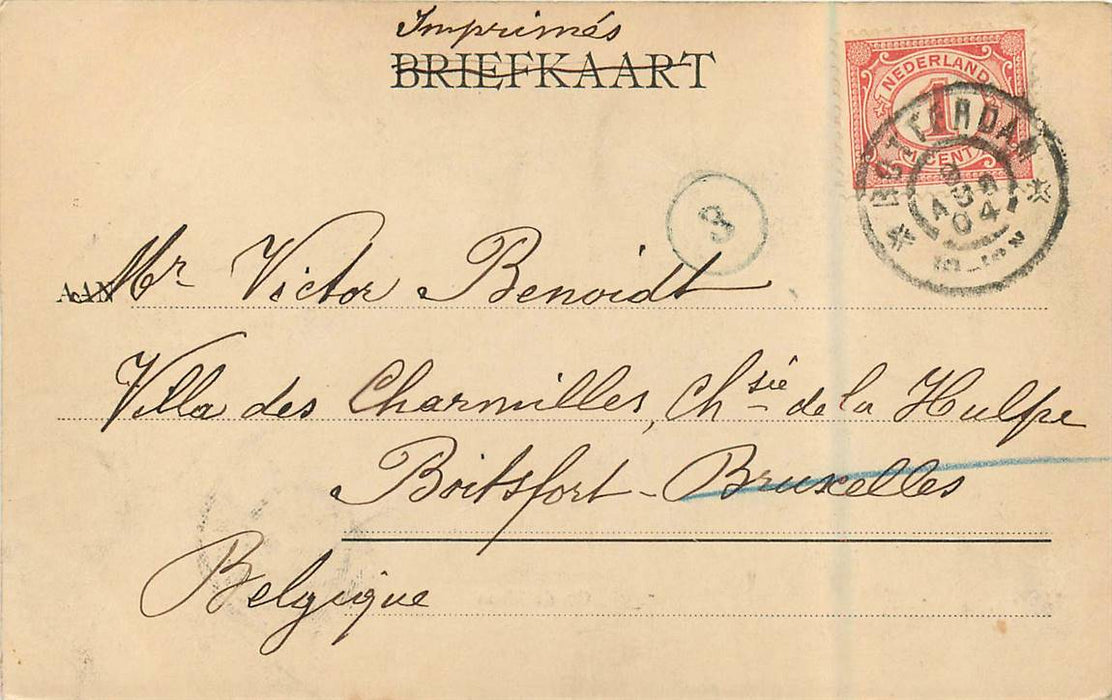 Imprimés
BRIEFKAART
NEDERLAND
1
1 CENT
ROTTERDAM
AUG
04
3
AAN Mr Victor Benoidt
Villa des Charmilles, Chsie de la Hulpe
Boitsfort - Bruxelles
Belgique